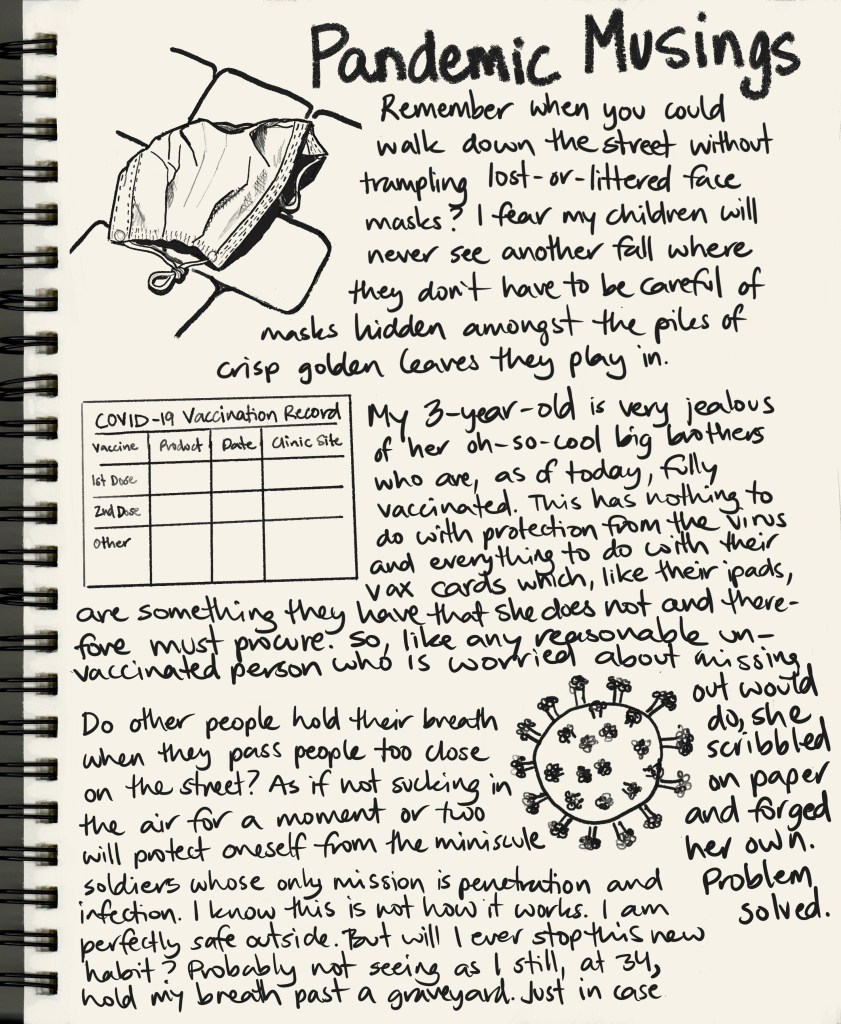 Pandemic Musings
Remember when you could
walk down the street without
trampling lost-or-littered face
masks? I fear my children will
never see another fall where
they don't have to be careful of
masks hidden amongst the piles of
crisp golden leaves they play in.
COVID-19 Vaccination Record
Vaccine Product Date Clinic Site
1st Dose
2nd Dose
Other
My 3-year-old is very jealous
of her oh-so-cool big brothers
who are, as of today, fully
vaccinated. This has nothing to
do with protection from the virus
and everything to do with their
vax cards which, like their ipads,
are something they have that she does not and there-
fore must procure. So, like any reasonable un-
vaccinated person who is worried about missing
out would
do, she
scribbled
on paper
and forged
her own.
Problem
solved.
Do other people hold their breath
when they pass people too close
on the street? As if not sucking in
the air for a moment or two
will protect oneself from the miniscule
soldiers whose only mission is penetration and
infection. I know this is not how it works. I am
perfectly safe outside. But will I ever stop this new
habit? Probably not seeing as I still, at 34,
hold my breath past a graveyard. Just in case